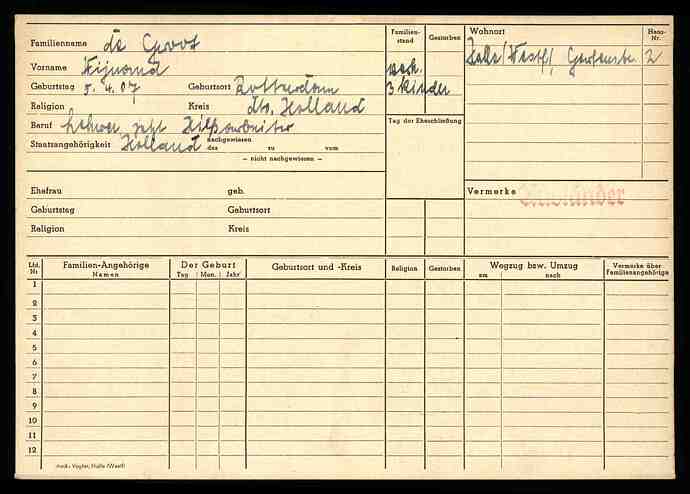 Familienname de Groot
Vorname Wijnand
Geburtstag 5.4.07 Geburtsort Rotterdam
Religion Kreis dto. Holland
Beruf Lehrer, jetzt Hilfsarbeiter
Staatsangehörigkeit Holland nachgewiesen
des zu vom
– nicht nachgewiesen –
Familien-
stand
Gestorben
verh.
3 Kinder
Tag der Eheschließung
Wohnort
Haus-
Nr.
Halle/Westf/, 2
Vermerke Ausländer
Ehefrau geb.
Geburtstag Geburtsort
Religion Kreis
Lfd.
Nr.
Familien-Angehörige
Namen
Der Geburt
Tag Mon. Jahr
Geburtsort und -Kreis
Religion
Gestorben
Wegzug bzw. Umzug
am nach
Vermerke über
Familienangehörige
1
2
3
4
5
6
7
8
9
10
11
12
Vogler, Halle (Westf)